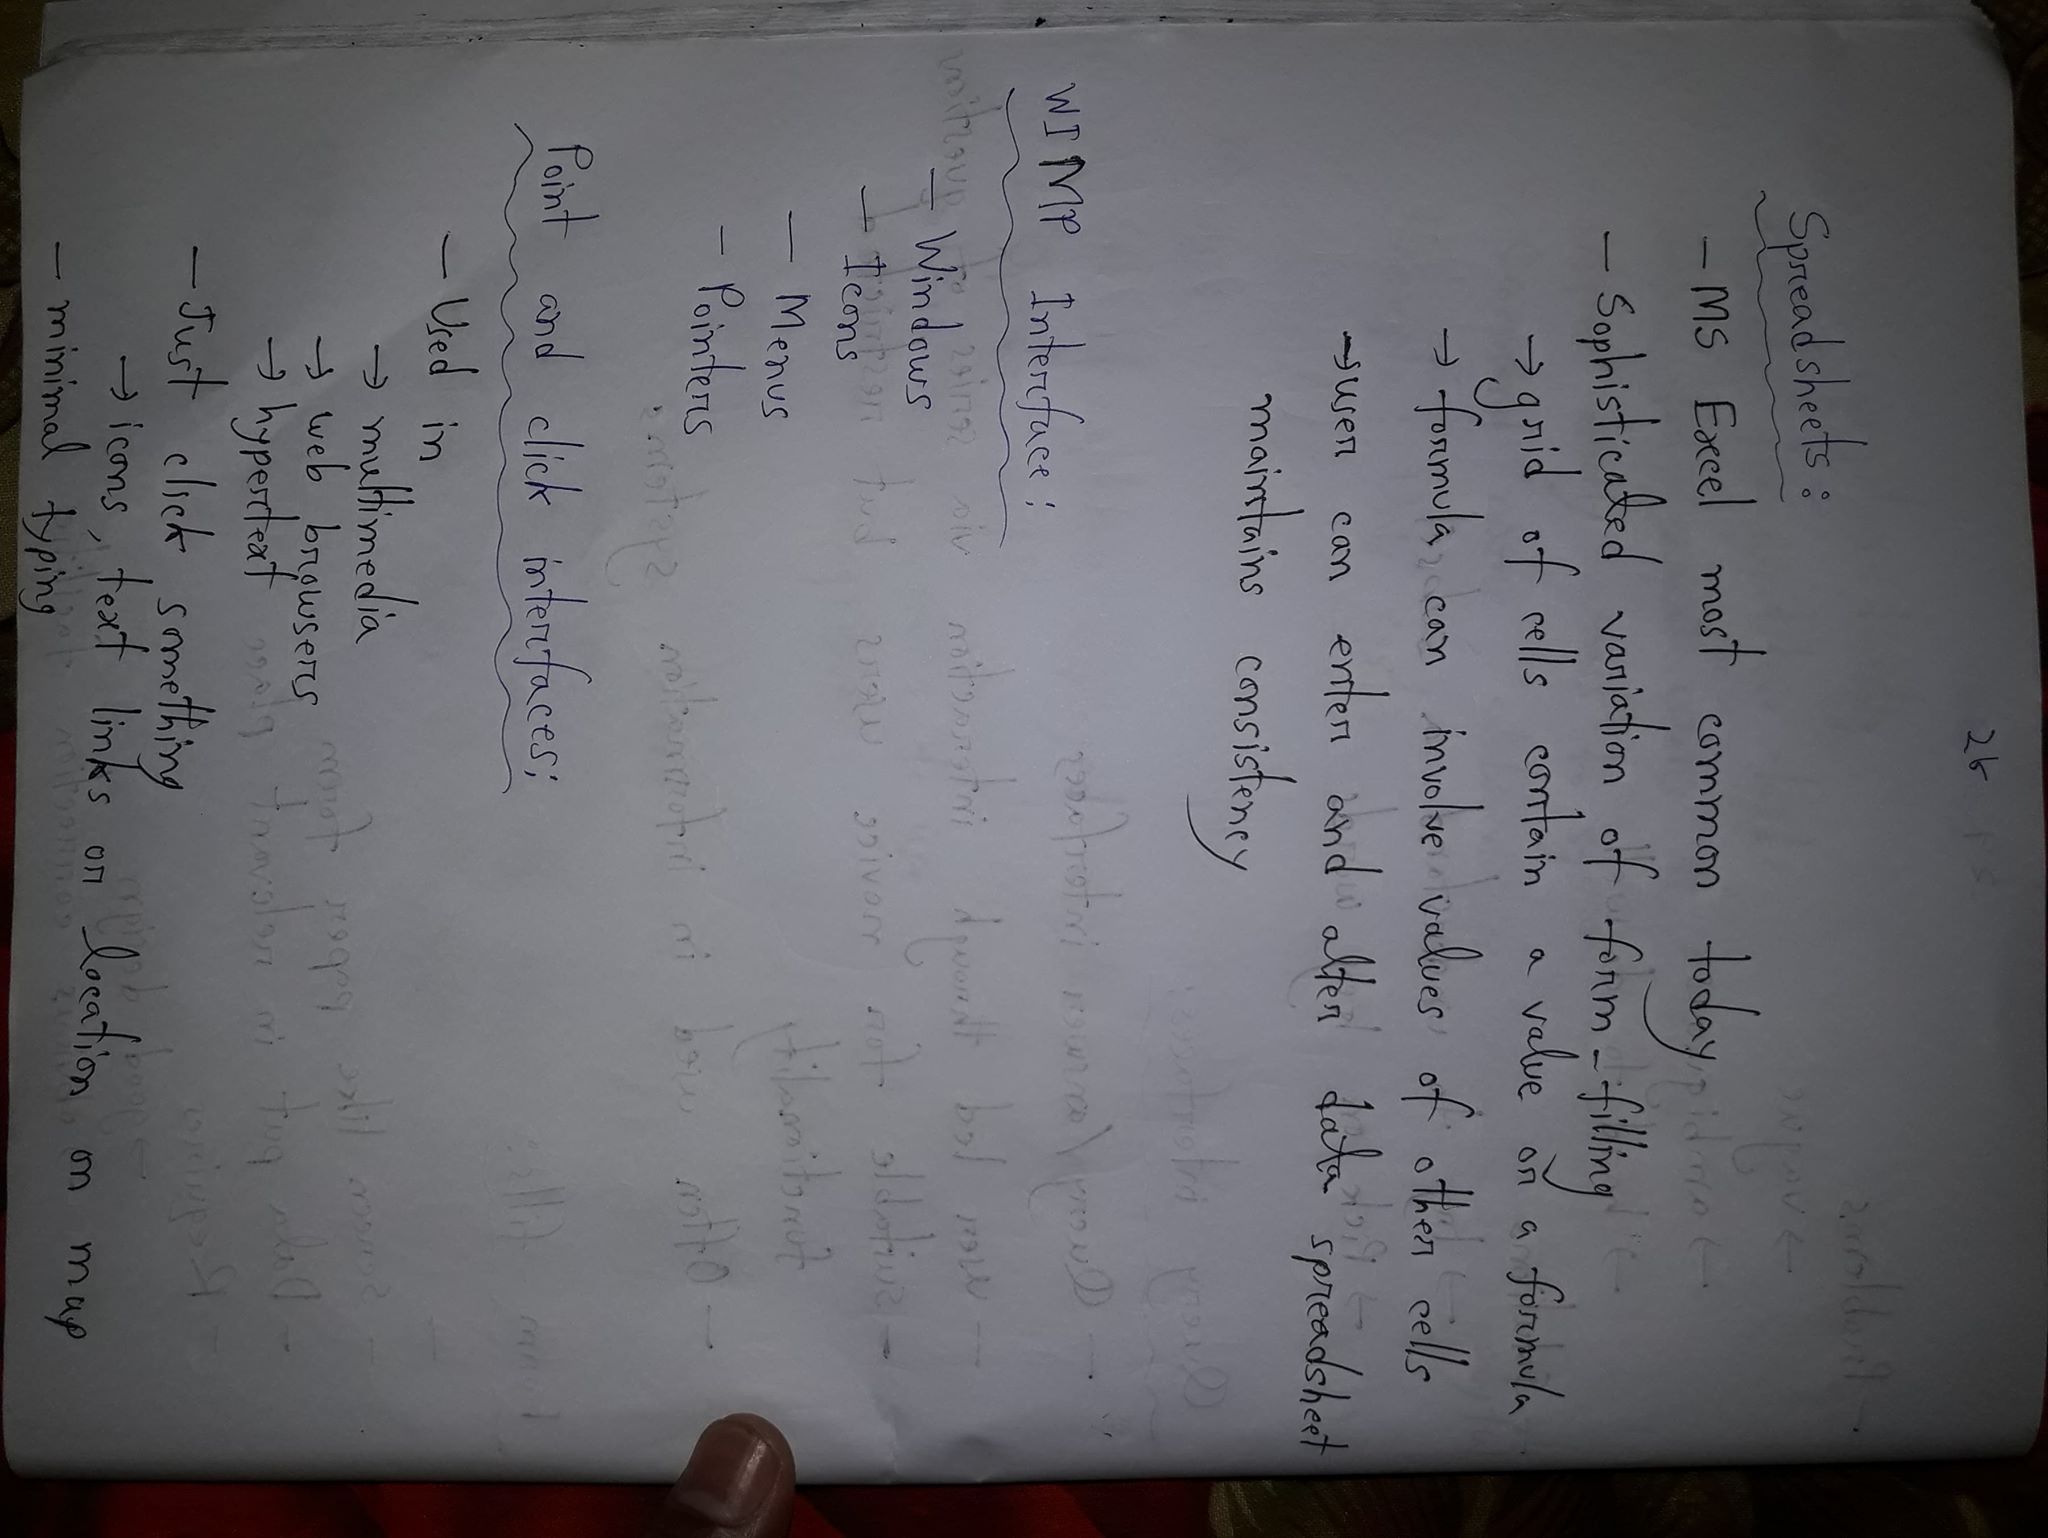 26
Spreadsheets:
- MS Excel most common today
- Sophisticated variation of form-filling
→ grid of cells contain a value or a formula
→ formula can involve values of other cells
→ user can enter and alter data spreadsheet
maintains consistency
WIMP Interface:
- Windows
- Icons
- Menus
- Pointers
Point and click interfaces:
- Used in
→ multimedia
→ web browsers
→ hypertext
- Just click something
→ icons, text links or location on map
- minimal typing